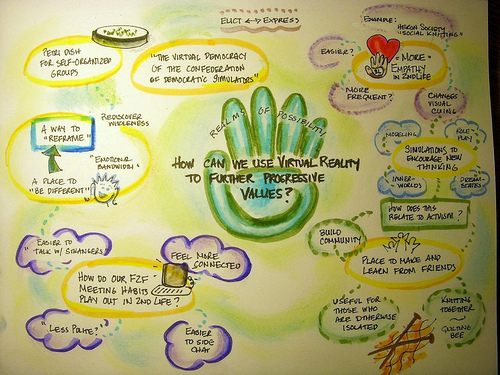 ELICIT ↔ EXPRESS
EXAMPLE:
HERON SOCIETY
"SOCIAL KNITTING"
PETRI DISH
FOR SELF-ORGANIZED
GROUPS
"THE VIRTUAL DEMOCRACY
OF THE CONFEDERATION
OF DEMOCRATIC SIMULATORS"
EASIER?
= MORE
EMPATHY
IN 2ND LIFE
MORE
FREQUENT?
CHANGES
VISUAL
CUING
REALMS OF POSSIBILITY
HOW CAN WE USE VIRTUAL REALITY
TO FURTHER PROGRESSIVE
VALUES?
A WAY TO
"REFRAME"
REDISCOVER
WHOLENESS
"EMOTIONAL
BANDWIDTH"
A PLACE TO
"BE DIFFERENT"
MODELING
ROLE-
PLAY
SIMULATIONS TO
ENCOURAGE NEW
THINKING
INNER-
WORLDS
DREAM-
SCAPES
HOW DOES THIS
RELATE TO ACTIVISM?
BUILD
COMMUNITY
PLACE TO MAKE AND
LEARN FROM FRIENDS
"EASIER TO
TALK W/ STRANGERS
FEEL MORE
CONNECTED
HOW DO OUR F2F
MEETING HABITS
PLAY OUT IN 2ND LIFE?
"LESS POLITE?"
EASIER
TO SIDE
CHAT
USEFUL FOR
THOSE WHO
ARE OTHERWISE
ISOLATED
KNITTING
TOGETHER
~
QUILTING
BEE